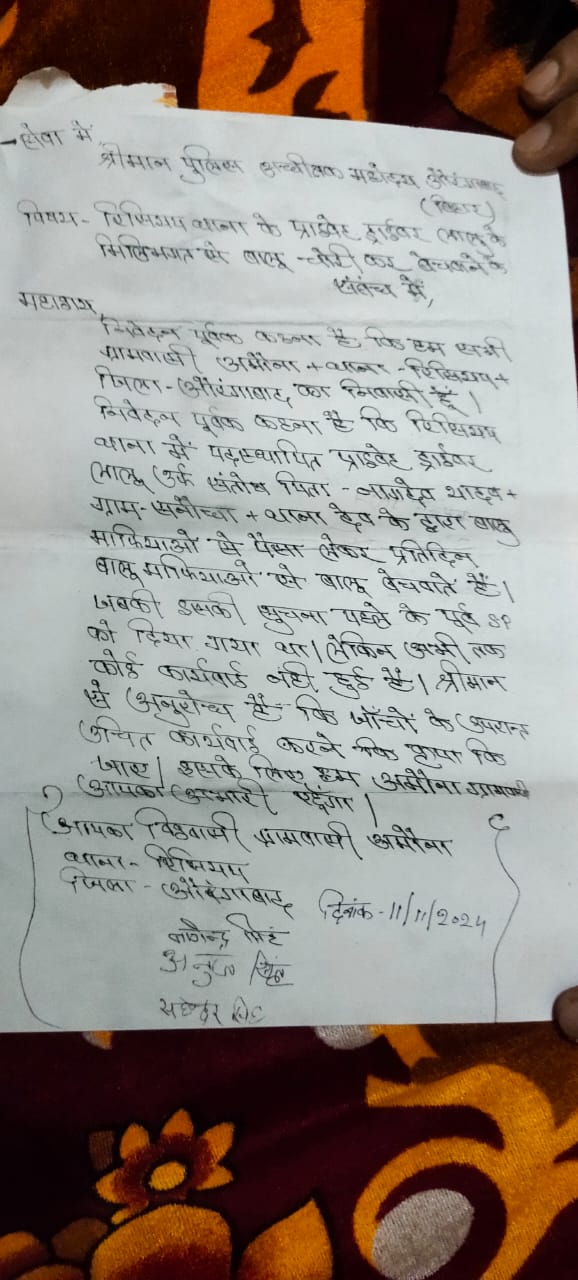 सेवा में,
श्रीमान पुलिस अधीक्षक महोदय औरंगाबाद
(बिहार)
विषय - रिसियप थाना के प्राइवेट ड्राईवर लालू के
मिलिभगत से बालू चोरी कर बेचवाने के
संबंध में,
महाशय,
निवेदन पूर्वक कहना है कि हम सभी
ग्रामवासी अमौना + थाना - रिसियप +
जिला - औरंगाबाद का निवासी हूँ।
निवेदन पूर्वक कहना है कि रिसियप
थाना में पदस्थापित प्राइवेट ड्राईवर
लालू उर्फ संतोष पिता - नागदेव यादव +
ग्राम - + थाना देव के द्वारा बालू
माफियाओं से पैसा लेकर प्रतिदिन
बालू माफियाओं से बालू बेचवाते हैं।
जबकी इसकी सुचना पहले के पूर्व SP
को दिया गया था। लेकिन अभी तक
कोई कार्यवाई नही हुई हैं। श्रीमान
से अनुरोध हैं कि जाँचो के उपरान्त
उचित कार्यवाई करने कि कृपा कि
जाए। इसके लिए हम अमौना ग्रामवासी
आपका आभारी रहूँगा।
आपका विश्वासी ग्रामवासी अमौना
थाना - रिसियप
जिला - औरंगाबाद
दिनांक - 11/11/2024
सिंह
अनुज सिंह
सिंह